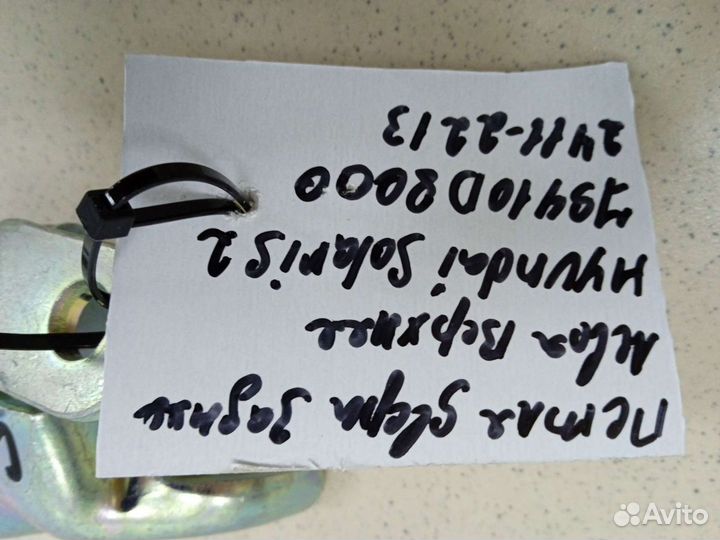 Петля двери задняя
левая верхняя
Hyundai Solaris 2
79410D8000
2411-2213
Avito